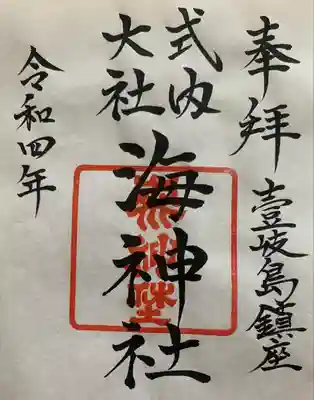 奉拝
壹岐島鎮座
式内
大社
海神社
令和四年